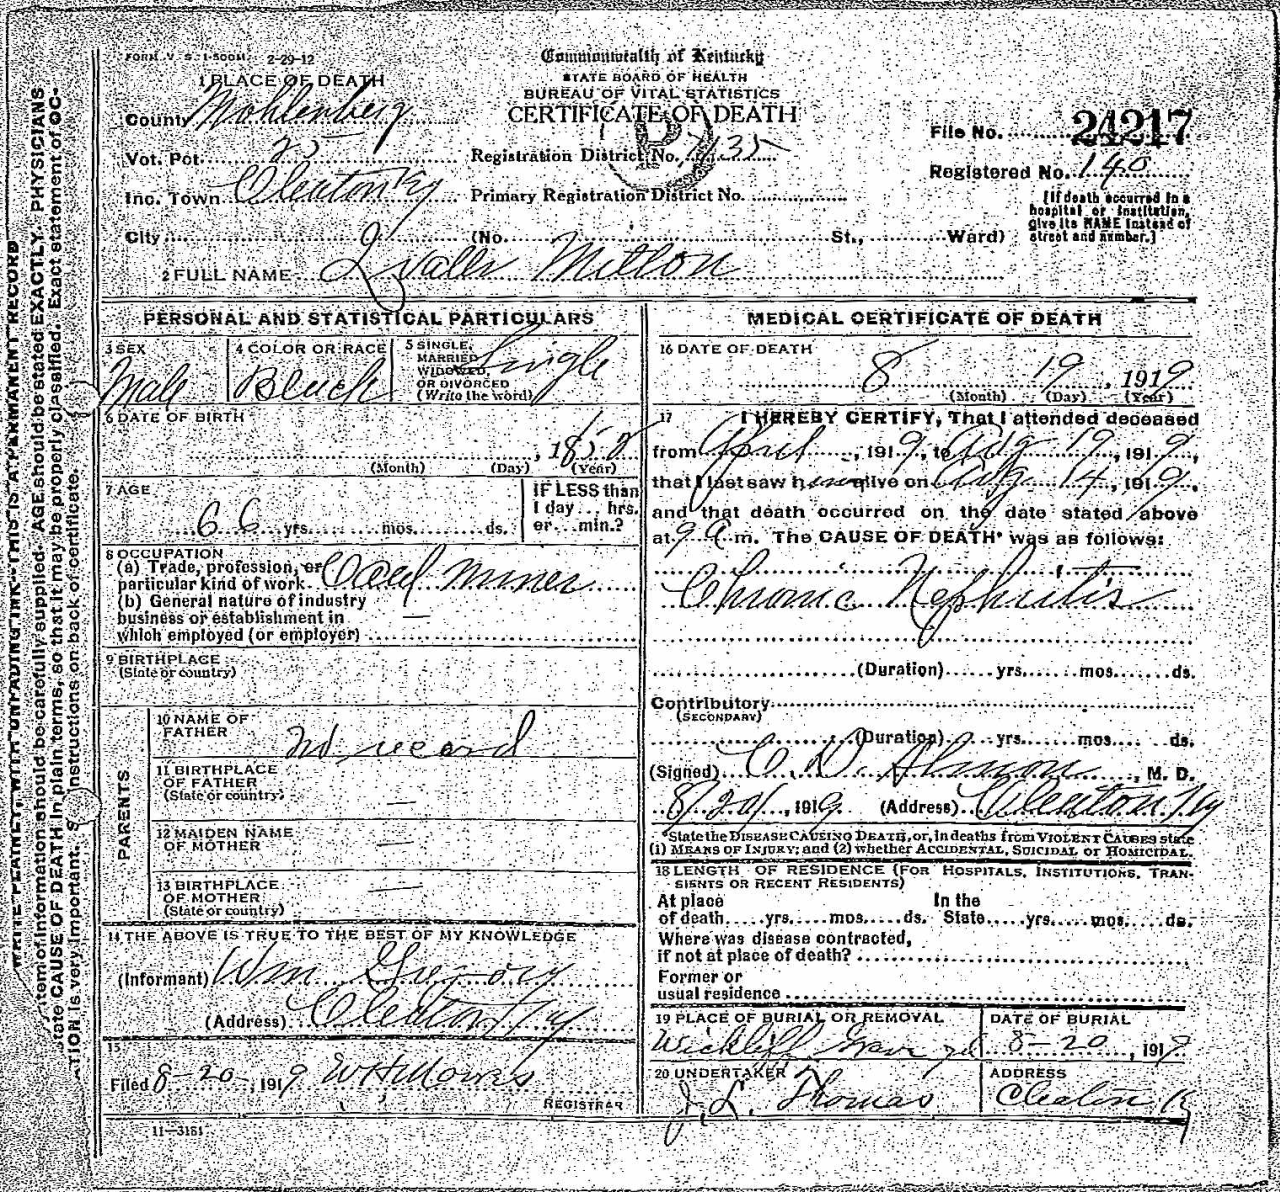 FORM V. S. 1-500M. 2-29-12
Commonwealth of Kentucky
STATE BOARD OF HEALTH
BUREAU OF VITAL STATISTICS
CERTIFICATE OF DEATH
1 PLACE OF DEATH
County Mohlenberg
Vot. Pct. 25
Inc. Town Cleaton Ky
City
(No. St., Ward)
Registration District No. 1135
Primary Registration District No.
File No. 24217
Registered No. 140
(If death occurred in a
hospital or institution,
give its NAME instead of
street and number.)
2 FULL NAME Mitton
PERSONAL AND STATISTICAL PARTICULARS
3 SEX
Male
4 COLOR OR RACE
Black
5 SINGLE,
MARRIED,
WIDOWED,
OR DIVORCED
(Write the word)
Single
6 DATE OF BIRTH
, 1852
(Month) (Day) (Year)
7 AGE
66 yrs. mos. ds.
IF LESS than
1 day... hrs.
or... min.?
8 OCCUPATION
(a) Trade, profession, or
particular kind of work. Coal miner
(b) General nature of industry
business or establishment in —
which employed (or employer)
9 BIRTHPLACE
(State or country)
PARENTS
10 NAME OF
FATHER
No record
11 BIRTHPLACE
OF FATHER
(State or country) —
12 MAIDEN NAME
OF MOTHER —
13 BIRTHPLACE
OF MOTHER —
(State or country)
14 THE ABOVE IS TRUE TO THE BEST OF MY KNOWLEDGE
(Informant) Wm Gregory
(Address) Cleaton Ky
15
Filed 8-20-, 1919
REGISTRAR
11-3151
MEDICAL CERTIFICATE OF DEATH
16 DATE OF DEATH
8 19, 1919
(Month) (Day) (Year)
17 I HEREBY CERTIFY, That I attended deceased
from April, 1919, to Aug 19, 1919,
that I last saw him alive on Aug 14, 1919,
and that death occurred on the date stated above
at 9 A. m. The CAUSE OF DEATH* was as follows:
Chronic Nephritis
(Duration) yrs. mos. ds.
Contributory
(SECONDARY)
(Duration) yrs. mos. ds.
(Signed) C. D. , M. D.
8/20/, 1919 (Address) Cleaton Ky
*State the DISEASE CAUSING DEATH, or, in deaths from VIOLENT CAUSES state
(1) MEANS OF INJURY; and (2) whether ACCIDENTAL, SUICIDAL or HOMICIDAL.
18 LENGTH OF RESIDENCE (FOR HOSPITALS, INSTITUTIONS, TRAN-
SIENTS OR RECENT RESIDENTS)
At place In the
of death yrs. mos. ds. State yrs. mos. ds.
Where was disease contracted,
if not at place of death?
Former or
usual residence
19 PLACE OF BURIAL OR REMOVAL
Wickliff Grave yd
DATE OF BURIAL
8-20, 1919
20 UNDERTAKER
J. L. Thomas
ADDRESS
Cleaton K
WRITE PLAINLY, WITH UNFADING INK—THIS IS A PERMANENT RECORD
item of information should be carefully supplied. AGE should be stated EXACTLY. PHYSICIANS
state CAUSE OF DEATH in plain terms, so that it may be properly classified. Exact statement of OC-
ATION is very important. S Instructions on back of certificate.